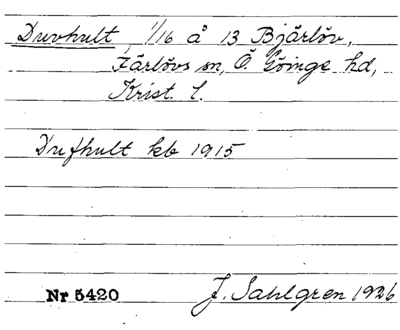 Duvhult, 1/16 å 13 Bjärlöv,
Färlövs sn, Ö. Göinge hd,
Krist. l.
Dufhult kb 1915
Nr 5420 J. Sahlgren 1926